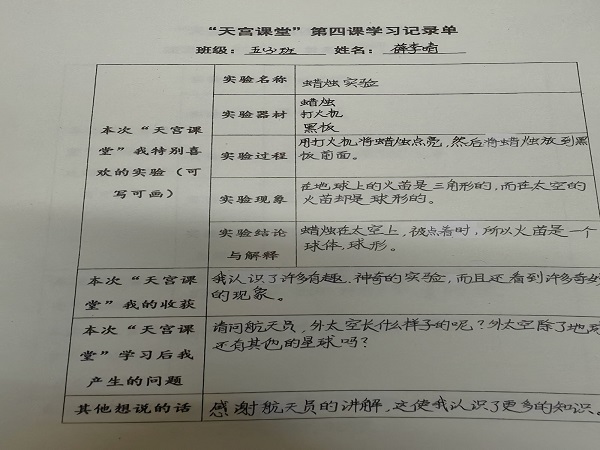 “天宫课堂”第四课学习记录单
班级：五(3)班 姓名：薛李晴
本次“天宫课堂”我特别喜欢的实验（可写可画）
实验名称 蜡烛实验
实验器材 蜡烛
打火机
黑板
实验过程 用打火机将蜡烛点亮，然后将蜡烛放到黑
板前面。
实验现象 在地球上的火苗是三角形的，而在太空的
火苗却是球形的。
实验结论与解释 蜡烛在太空上，被点着时，所以火苗是一个
球体，球形。
本次“天宫课堂”我的收获 我认识了许多有趣、神奇的实验，而且还看到许多奇妙
的现象。
本次“天宫课堂”学习后我产生的问题 请问航天员，外太空长什么样子的呢？外太空除了地球
还有其他的星球吗？
其他想说的话 感谢航天员的讲解，这使我认识了更多的知识。